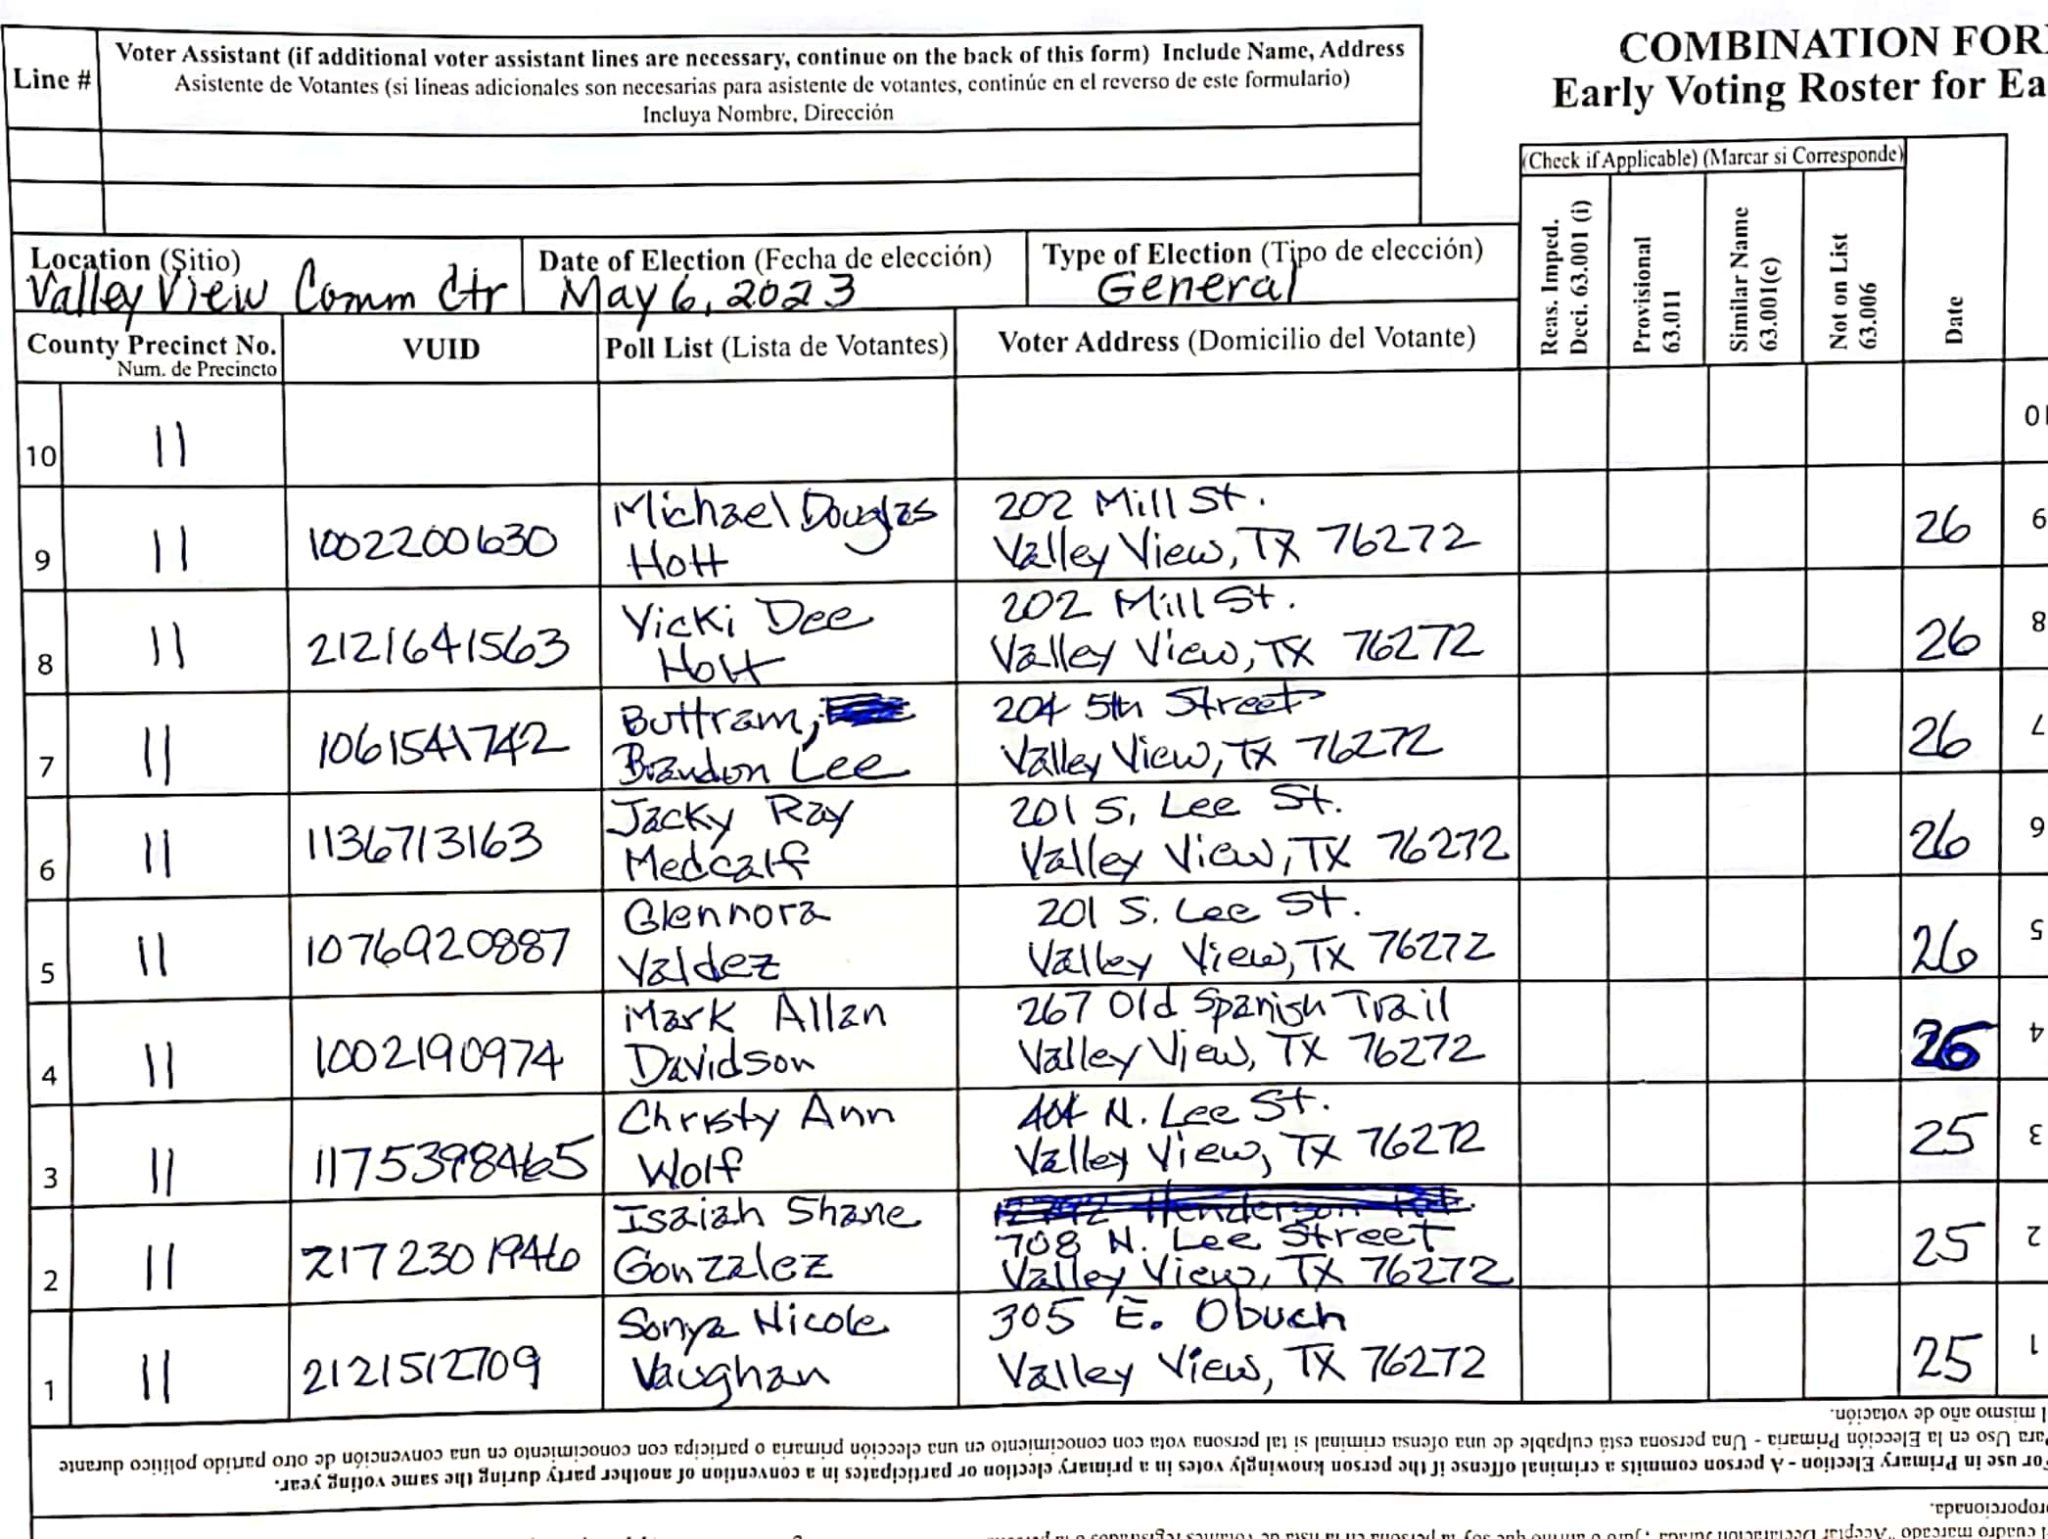 Line #
Voter Assistant (if additional voter assistant lines are necessary, continue on the back of this form) Include Name, Address
Asistente de Votantes (si líneas adicionales son necesarias para asistente de votantes, continúe en el reverso de este formulario)
Incluya Nombre, Dirección
COMBINATION FOR
Early Voting Roster for Ea
(Check if Applicable) (Marcar si Corresponde)
Reas. Imped.
Deci. 63.001 (i)
Provisional
63.011
Similar Name
63.001(c)
Not on List
63.006
Date
Location (Sitio)
Valley View Comm Ctr
Date of Election (Fecha de elección)
May 6, 2023
Type of Election (Tipo de elección)
General
County Precinct No.
Num. de Precincto
VUID
Poll List (Lista de Votantes)
Voter Address (Domicilio del Votante)
10 11 10
9 11 1002200630 Michael Douglas
Hott
202 Mill St.
Valley View, TX 76272
26 9
8 11 2121641563 Vicki Dee
Hott
202 Mill St.
Valley View, TX 76272
26 8
7 11 1061541742 Buttram,
Brandon Lee
204 5th Street
Valley View, TX 76272
26 7
6 11 1136713163 Jacky Ray
Medcalf
201 S. Lee St.
Valley View, TX 76272
26 6
5 11 1076920887 Glennora
Valdez
201 S. Lee St.
Valley View, TX 76272
26 5
4 11 1002190974 Mark Allan
Davidson
267 Old Spanish Trail
Valley View, TX 76272
26 4
3 11 1175398465 Christy Ann
Wolf
404 N. Lee St.
Valley View, TX 76272
25 3
2 11 2172301946 Isaiah Shane
Gonzalez
Henderson
708 N. Lee Street
Valley View, TX 76272
25 2
1 11 2121512709 Sonya Nicole
Vaughan
305 E. Obuch
Valley View, TX 76272
25 1
l mismo año de votación.
Para Uso en la Elección Primaria - Una persona está culpable de una ofensa criminal si tal persona vota con conocimiento en una elección primaria o participa con conocimiento en una convención de otro partido político durante
For use in Primary Election - A person commits a criminal offense if the person knowingly votes in a primary election or participates in a convention of another party during the same voting year.
proporcionada.